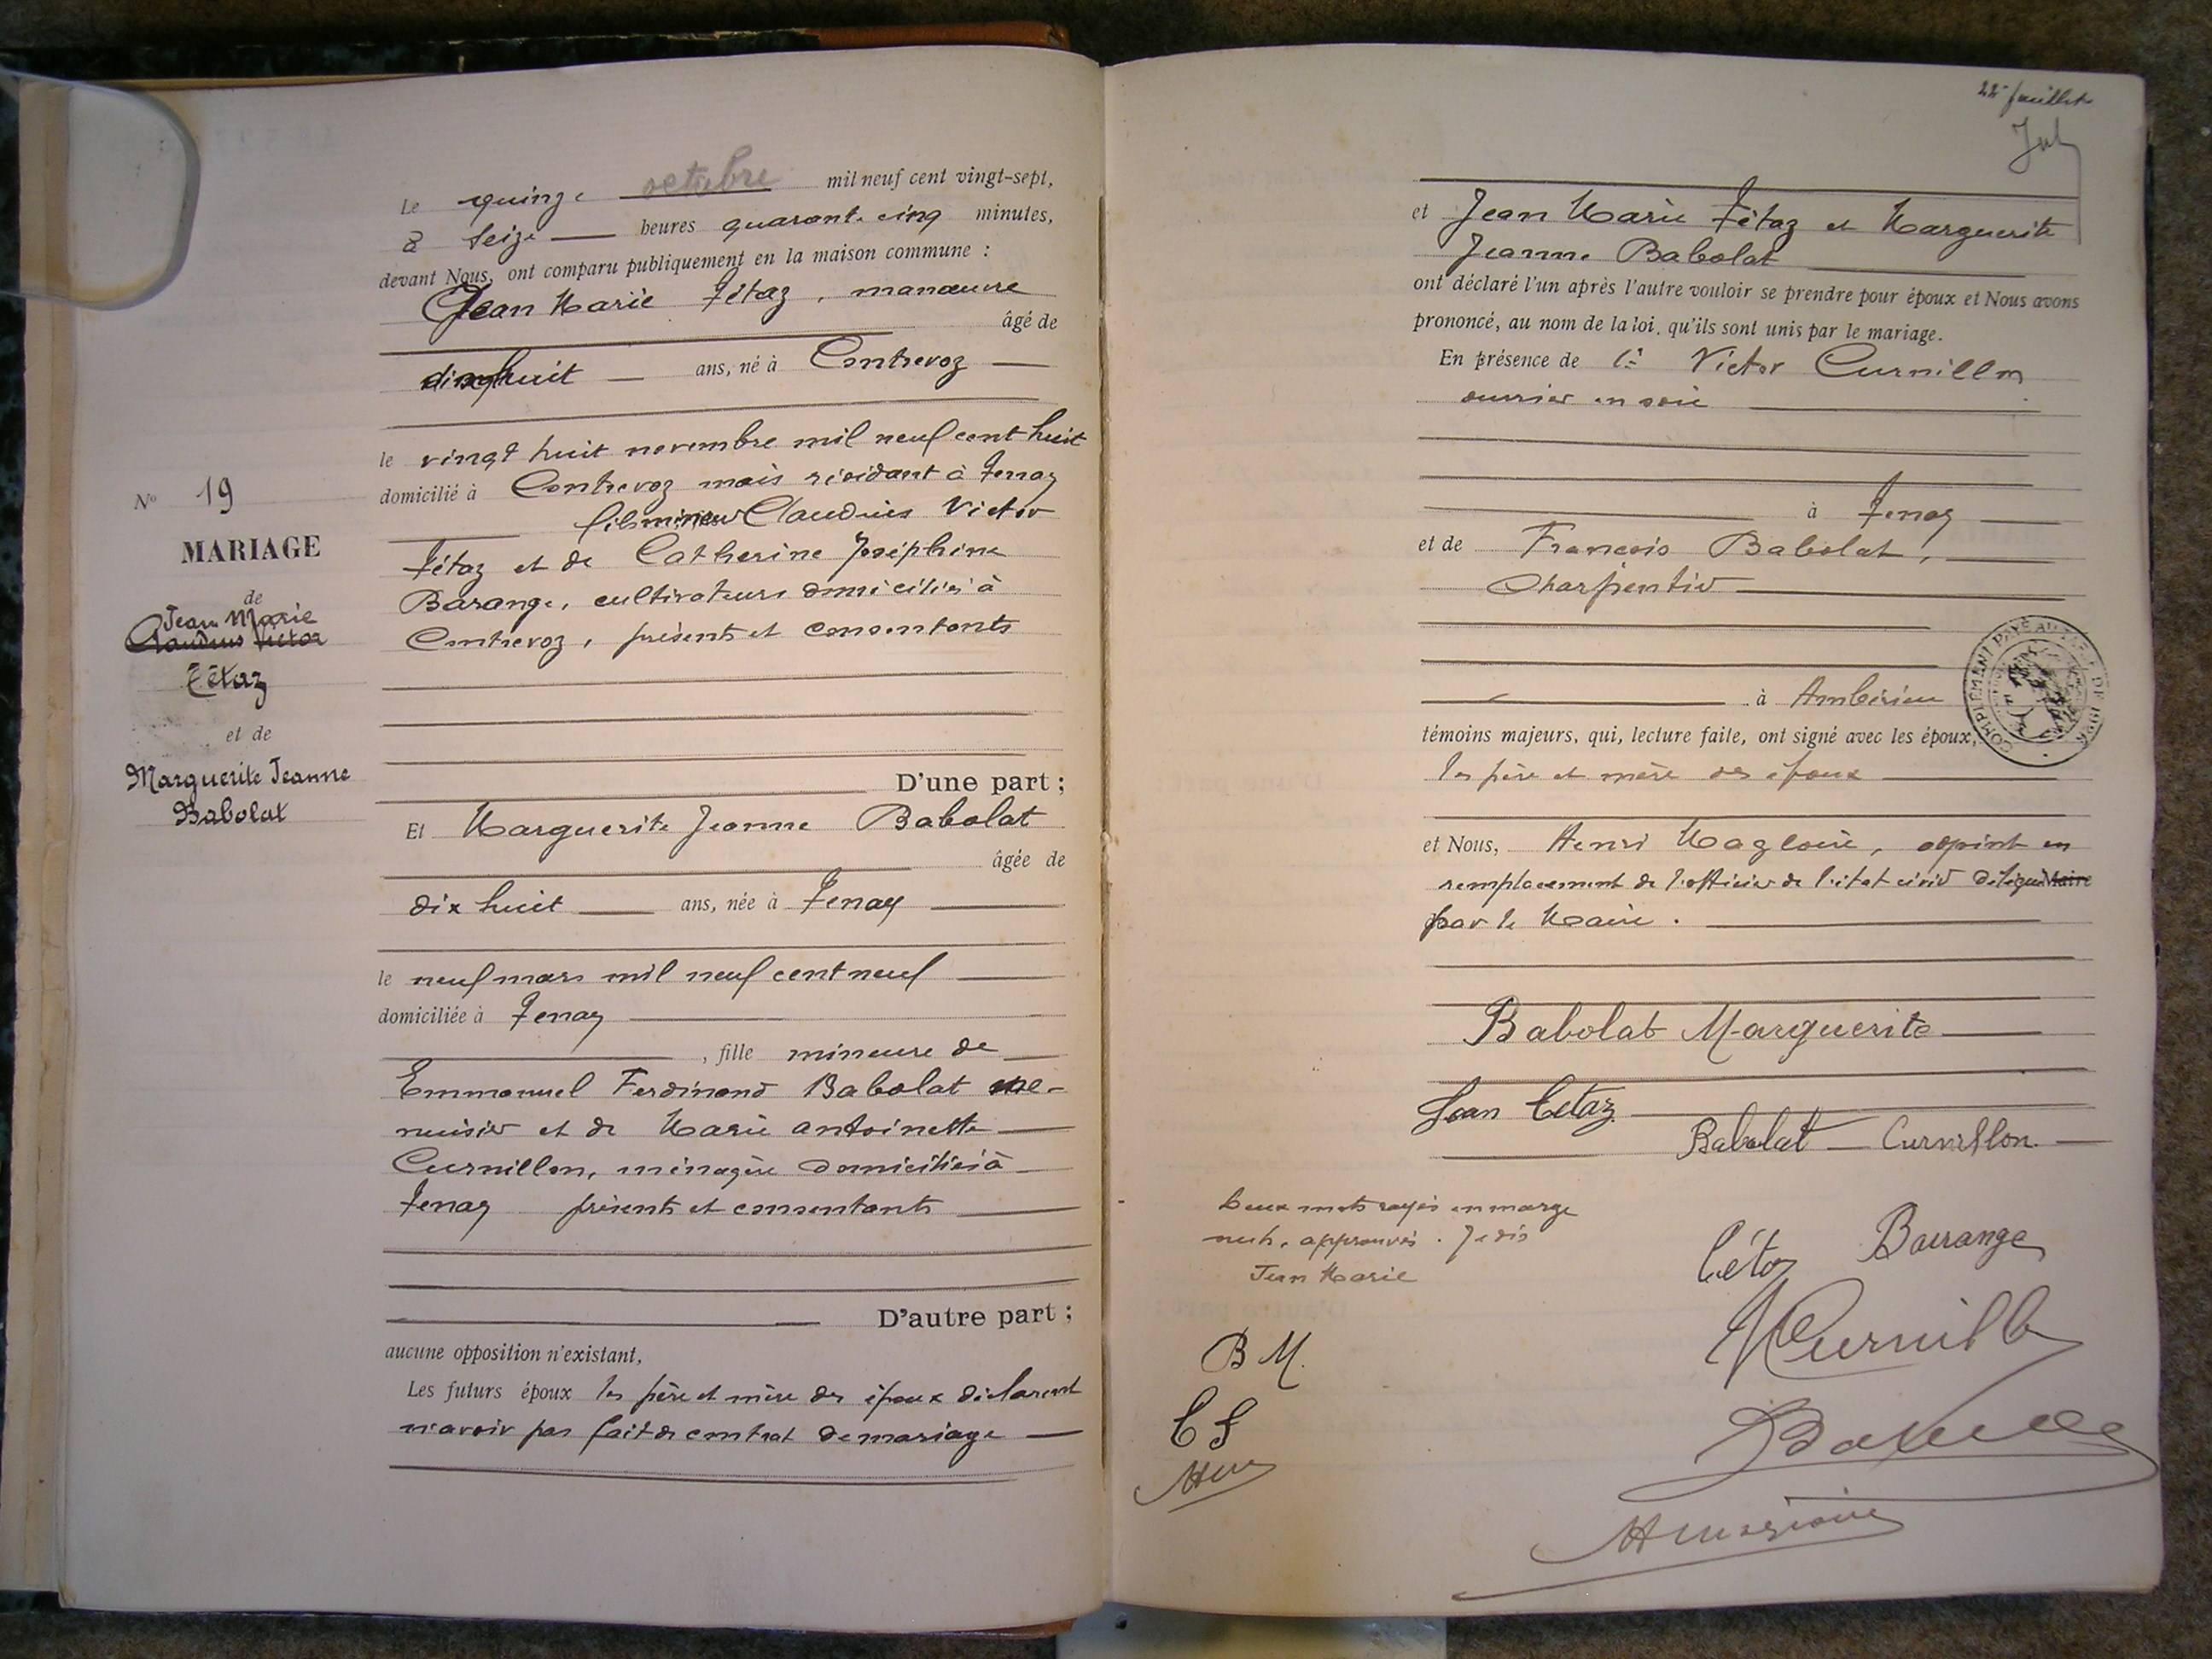 Le quinze octobre mil neuf cent vingt-sept,
à seize heures quarante cinq minutes,
devant Nous, ont comparu publiquement en la maison commune :
Jean Marie Tétaz, manœuvre
âgé de
dix huit ans, né à Contrevoz
le vingt huit novembre mil neuf cent huit
domicilié à Contrevoz mais résidant à Tenay
fils mineur Claudius Victor
Tétaz et de Catherine Joséphine
Barange, cultivateurs domiciliés à
Contrevoz, présents et consentants
D'une part ;
Et Marguerite Jeanne Babolat
âgée de
dix huit ans, née à Tenay
le neuf mars mil neuf cent neuf
domiciliée à Tenay
, fille mineure de
Emmanuel Ferdinand Babolat me-
nuisier et de Marie Antoinette
Curnillon, ménagère domiciliés à
Tenay présents et consentants
D'autre part ;
aucune opposition n'existant,
Les futurs époux les père et mère des époux déclarent
n'avoir pas fait de contrat de mariage
No 19
MARIAGE
de
Jean Marie
Claudius Victor
Tétaz
et de
Marguerite Jeanne
Babolat
22e feuillet
et Jean Marie Tétaz et Marguerite
Jeanne Babolat
ont déclaré l'un après l'autre vouloir se prendre pour époux et Nous avons
prononcé, au nom de la loi, qu'ils sont unis par le mariage.
En présence de Victor Curnillon
ouvrier en soie
à Tenay
et de François Babolat,
Charpentier
à Ambérieu
témoins majeurs, qui, lecture faite, ont signé avec les époux,
les père et mère des époux
et Nous, Henri Magloire, adjoint en
remplacement de l'officier de l'état civil délégué
par le Maire.
COMPLÉMENT PAYÉ AU DE
Babolat Marguerite
Jean Tétaz
Babolat Curnillon
Deux mots rayés en marge
nuls, approuvés. Je dis
Jean Marie
Tétaz Barange
B M.
T J
V Curnillon